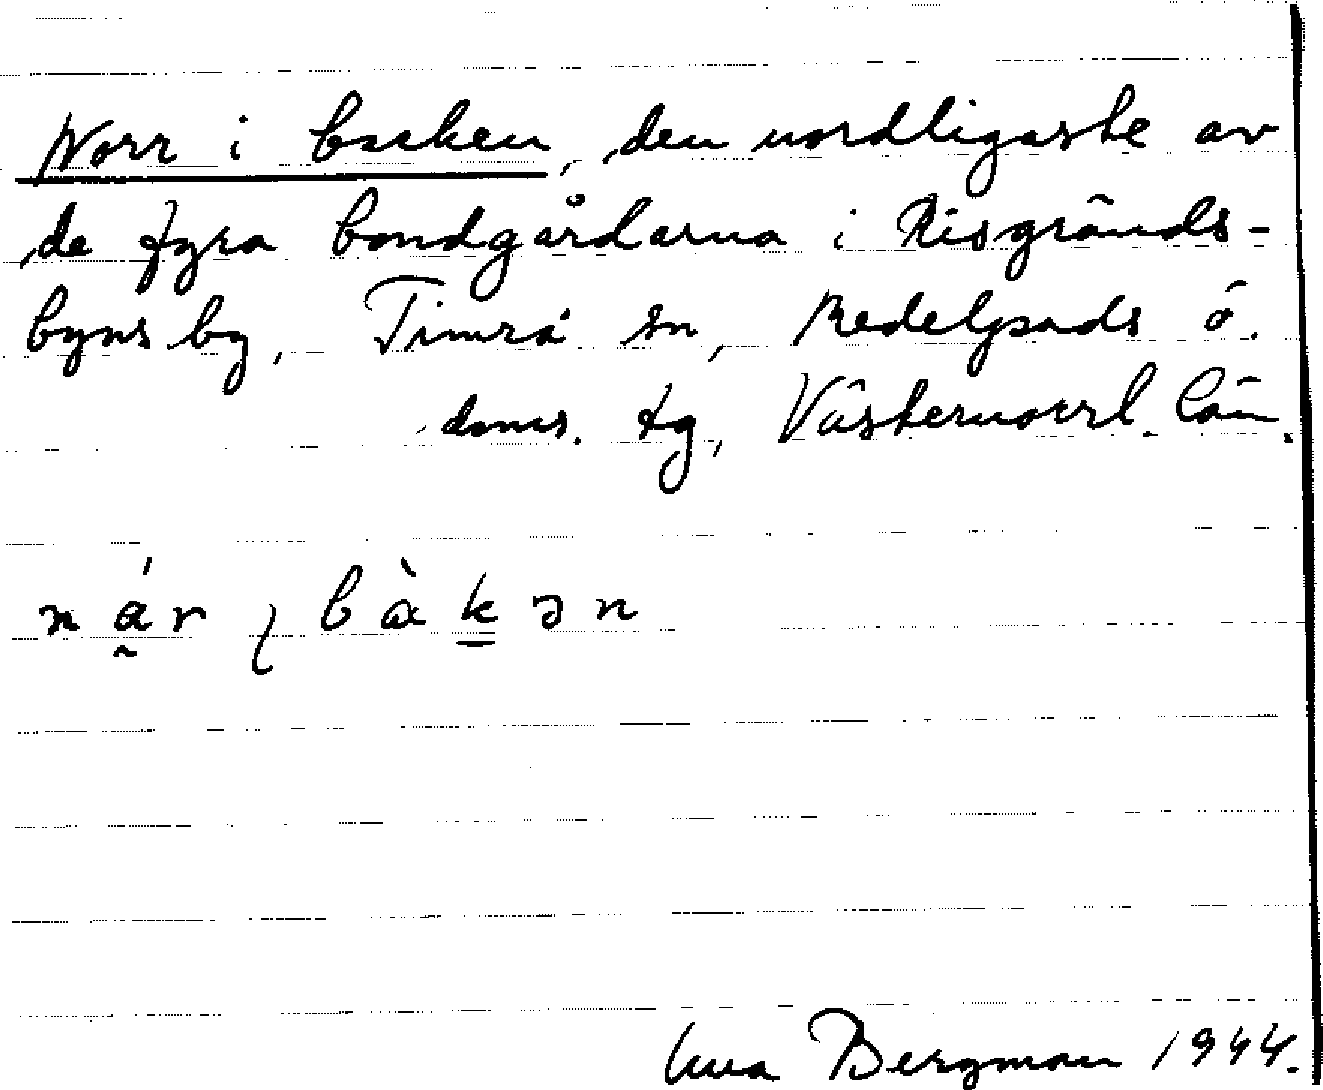 Norr i backen, den nordligaste av
de fyra bondgårdarna i Risgränds-
byns by, Timrå sn, Medelpads ö.
doms. tg, Västernorrl. län.
bàkən
Bergman 1944.